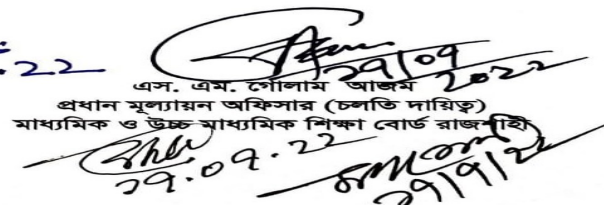 29/09
2022
22
এস. এম. গোলাম আজম
প্রধান মূল্যায়ন অফিসার (চলতি দায়িত্ব)
মাধ্যমিক ও উচ্চ মাধ্যমিক শিক্ষা বোর্ড রাজশাহী
29.09.22
29/9/22